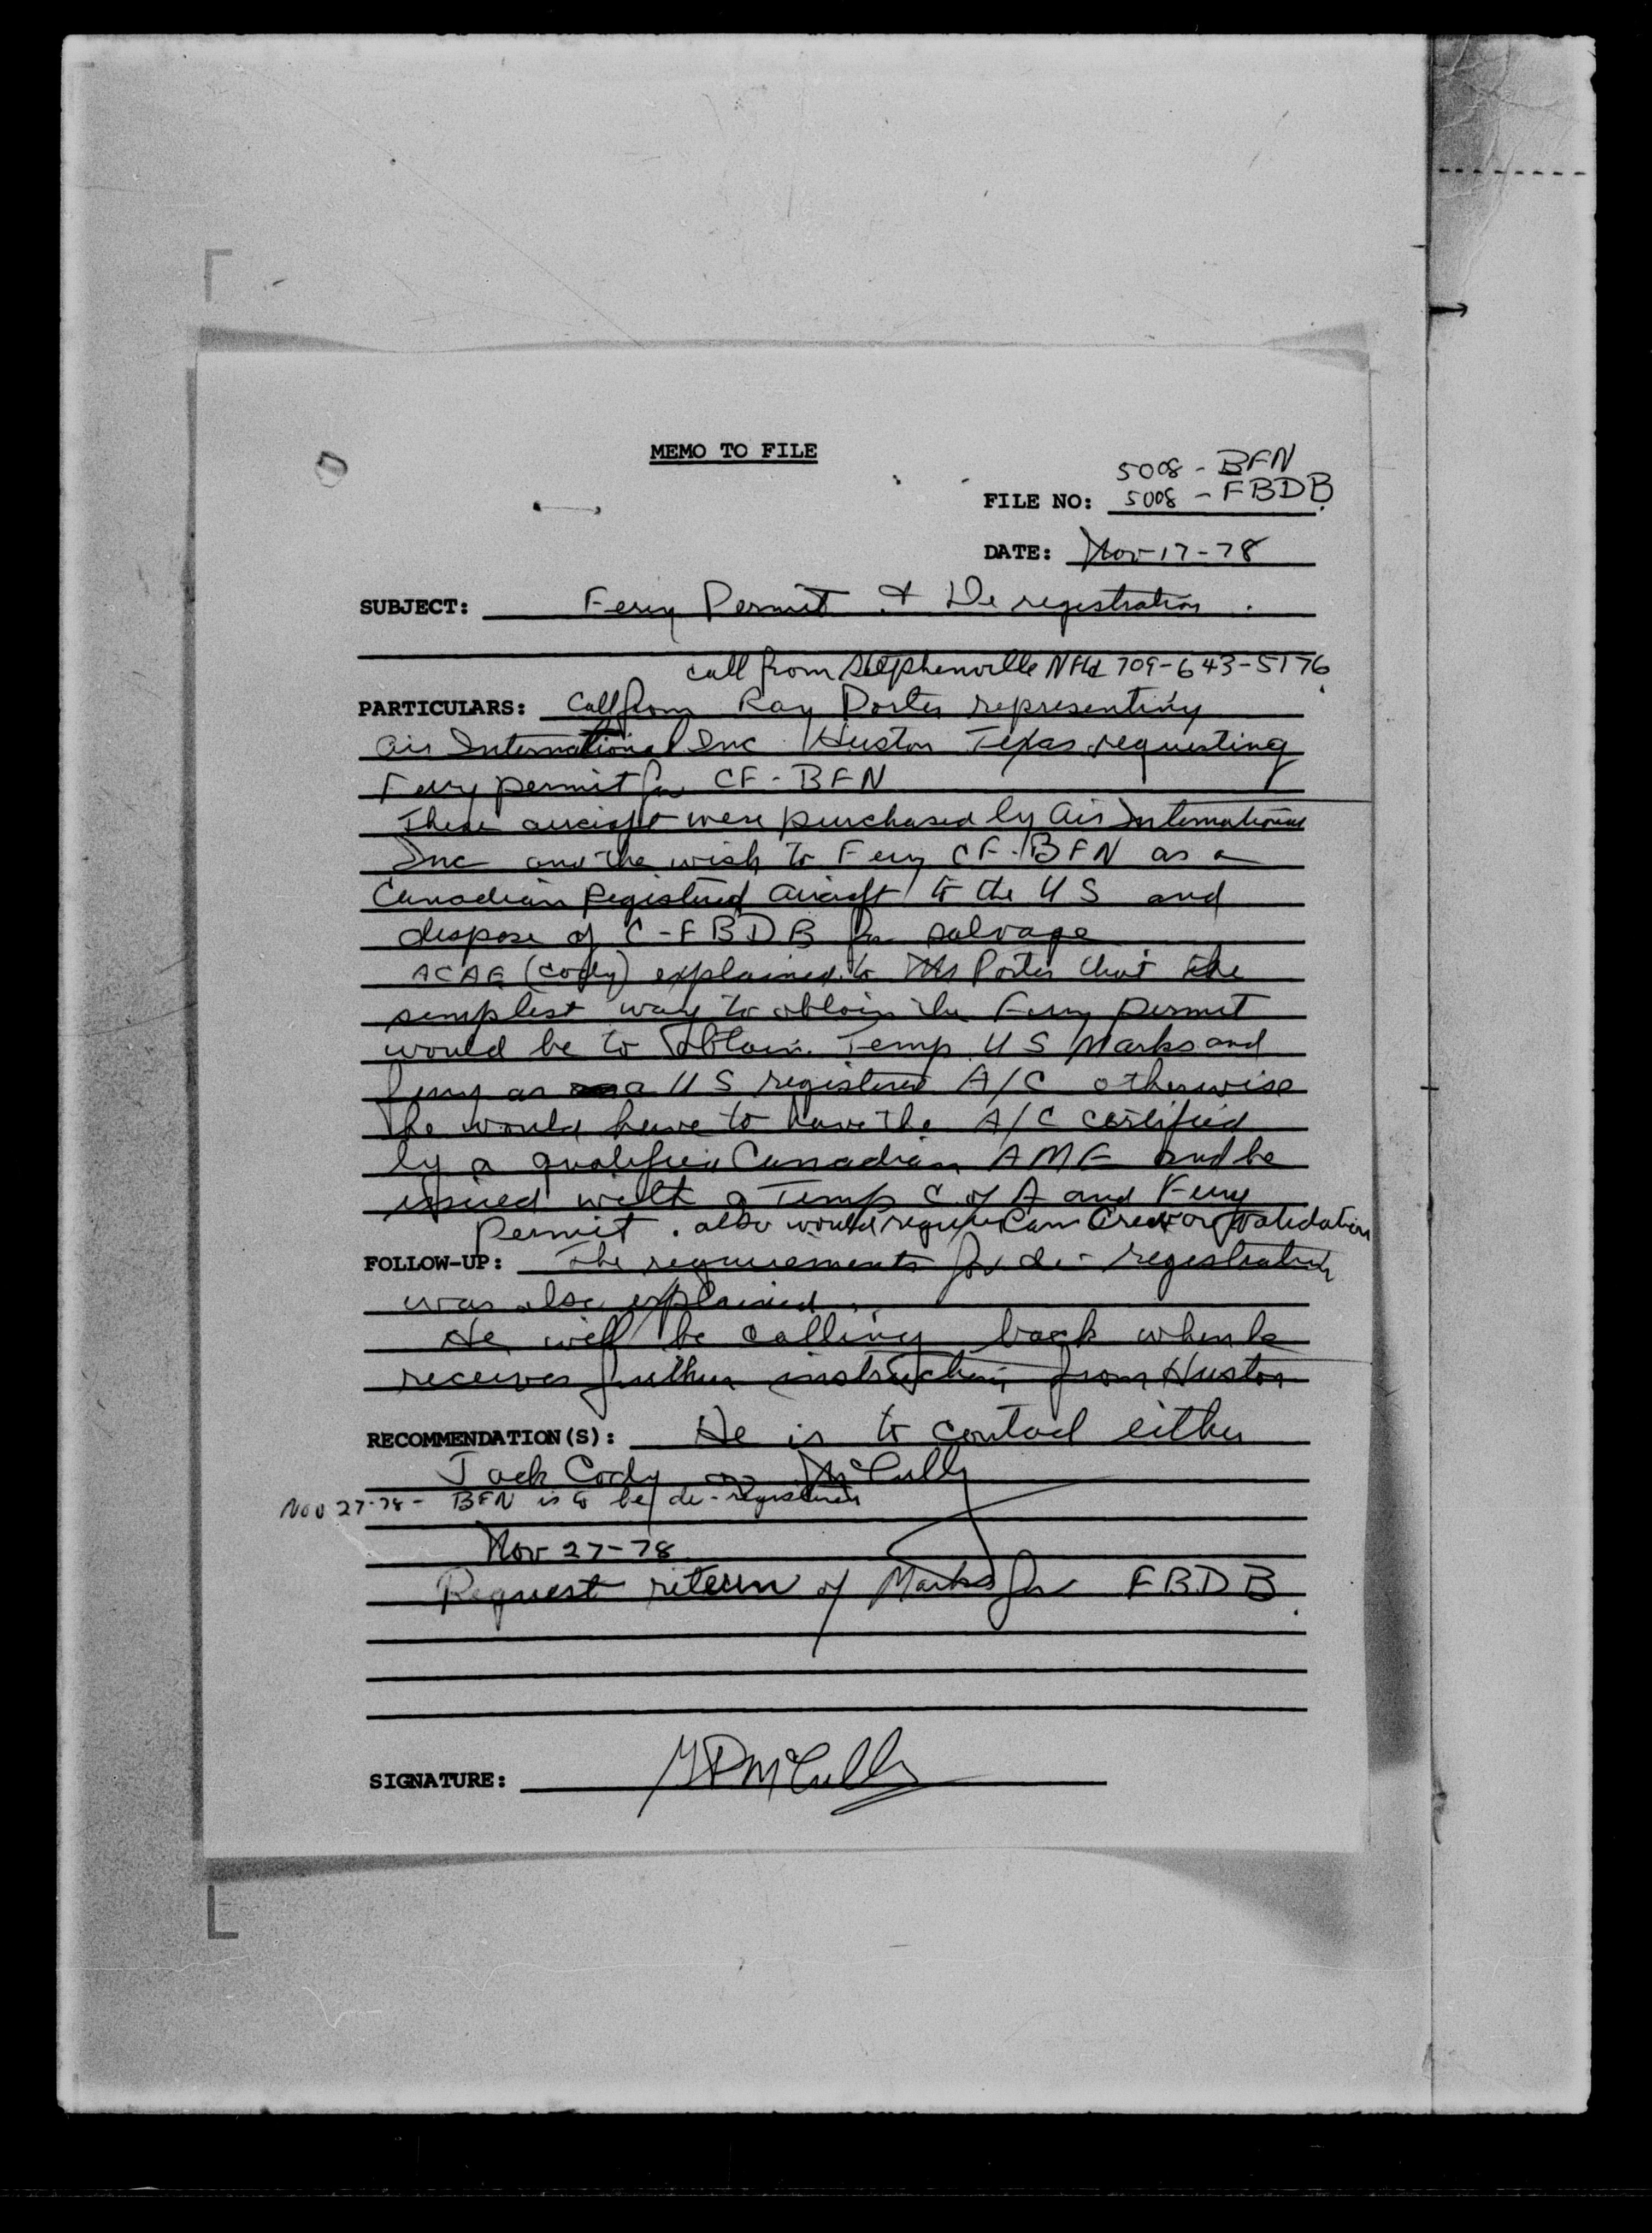 MEMO TO FILE
5008 - BFN
FILE NO: 5008 - FBDB
DATE: Nov-17-78
SUBJECT: Ferry Permit & De registration.
call from Stephenville Nfld 709-643-5176
PARTICULARS: Call from Ray Porter representing
Air International Inc Huston Texas requesting
Ferry permit for CF-BFN
These aircraft were purchased by Air International
Inc and the wish to Ferry CF-BFN as a
Canadian Registered aircraft to the US and
dispose of C-FBDB for salvage
ACAE (Cody) explained to Mr Porter that the
simplest way to obtain the Ferry permit
would be to obtain Temp US Marks and
ferry as a US registered A/C otherwise
he would have to have the A/C certified
by a qualified Canadian AME and be
issued with a Temp C of A and Ferry
permit. also would require Can Crew or Validation
FOLLOW-UP: The requirements for de-registration
was also explained.
He will be calling back when he
receives further instruction from Huston
RECOMMENDATION(S): He is to contact either
Jack Cody or McCully
Nov 27-78 - BFN is to be de-registered
Nov 27-78
Request return of Marks for FBDB.
SIGNATURE: McCully